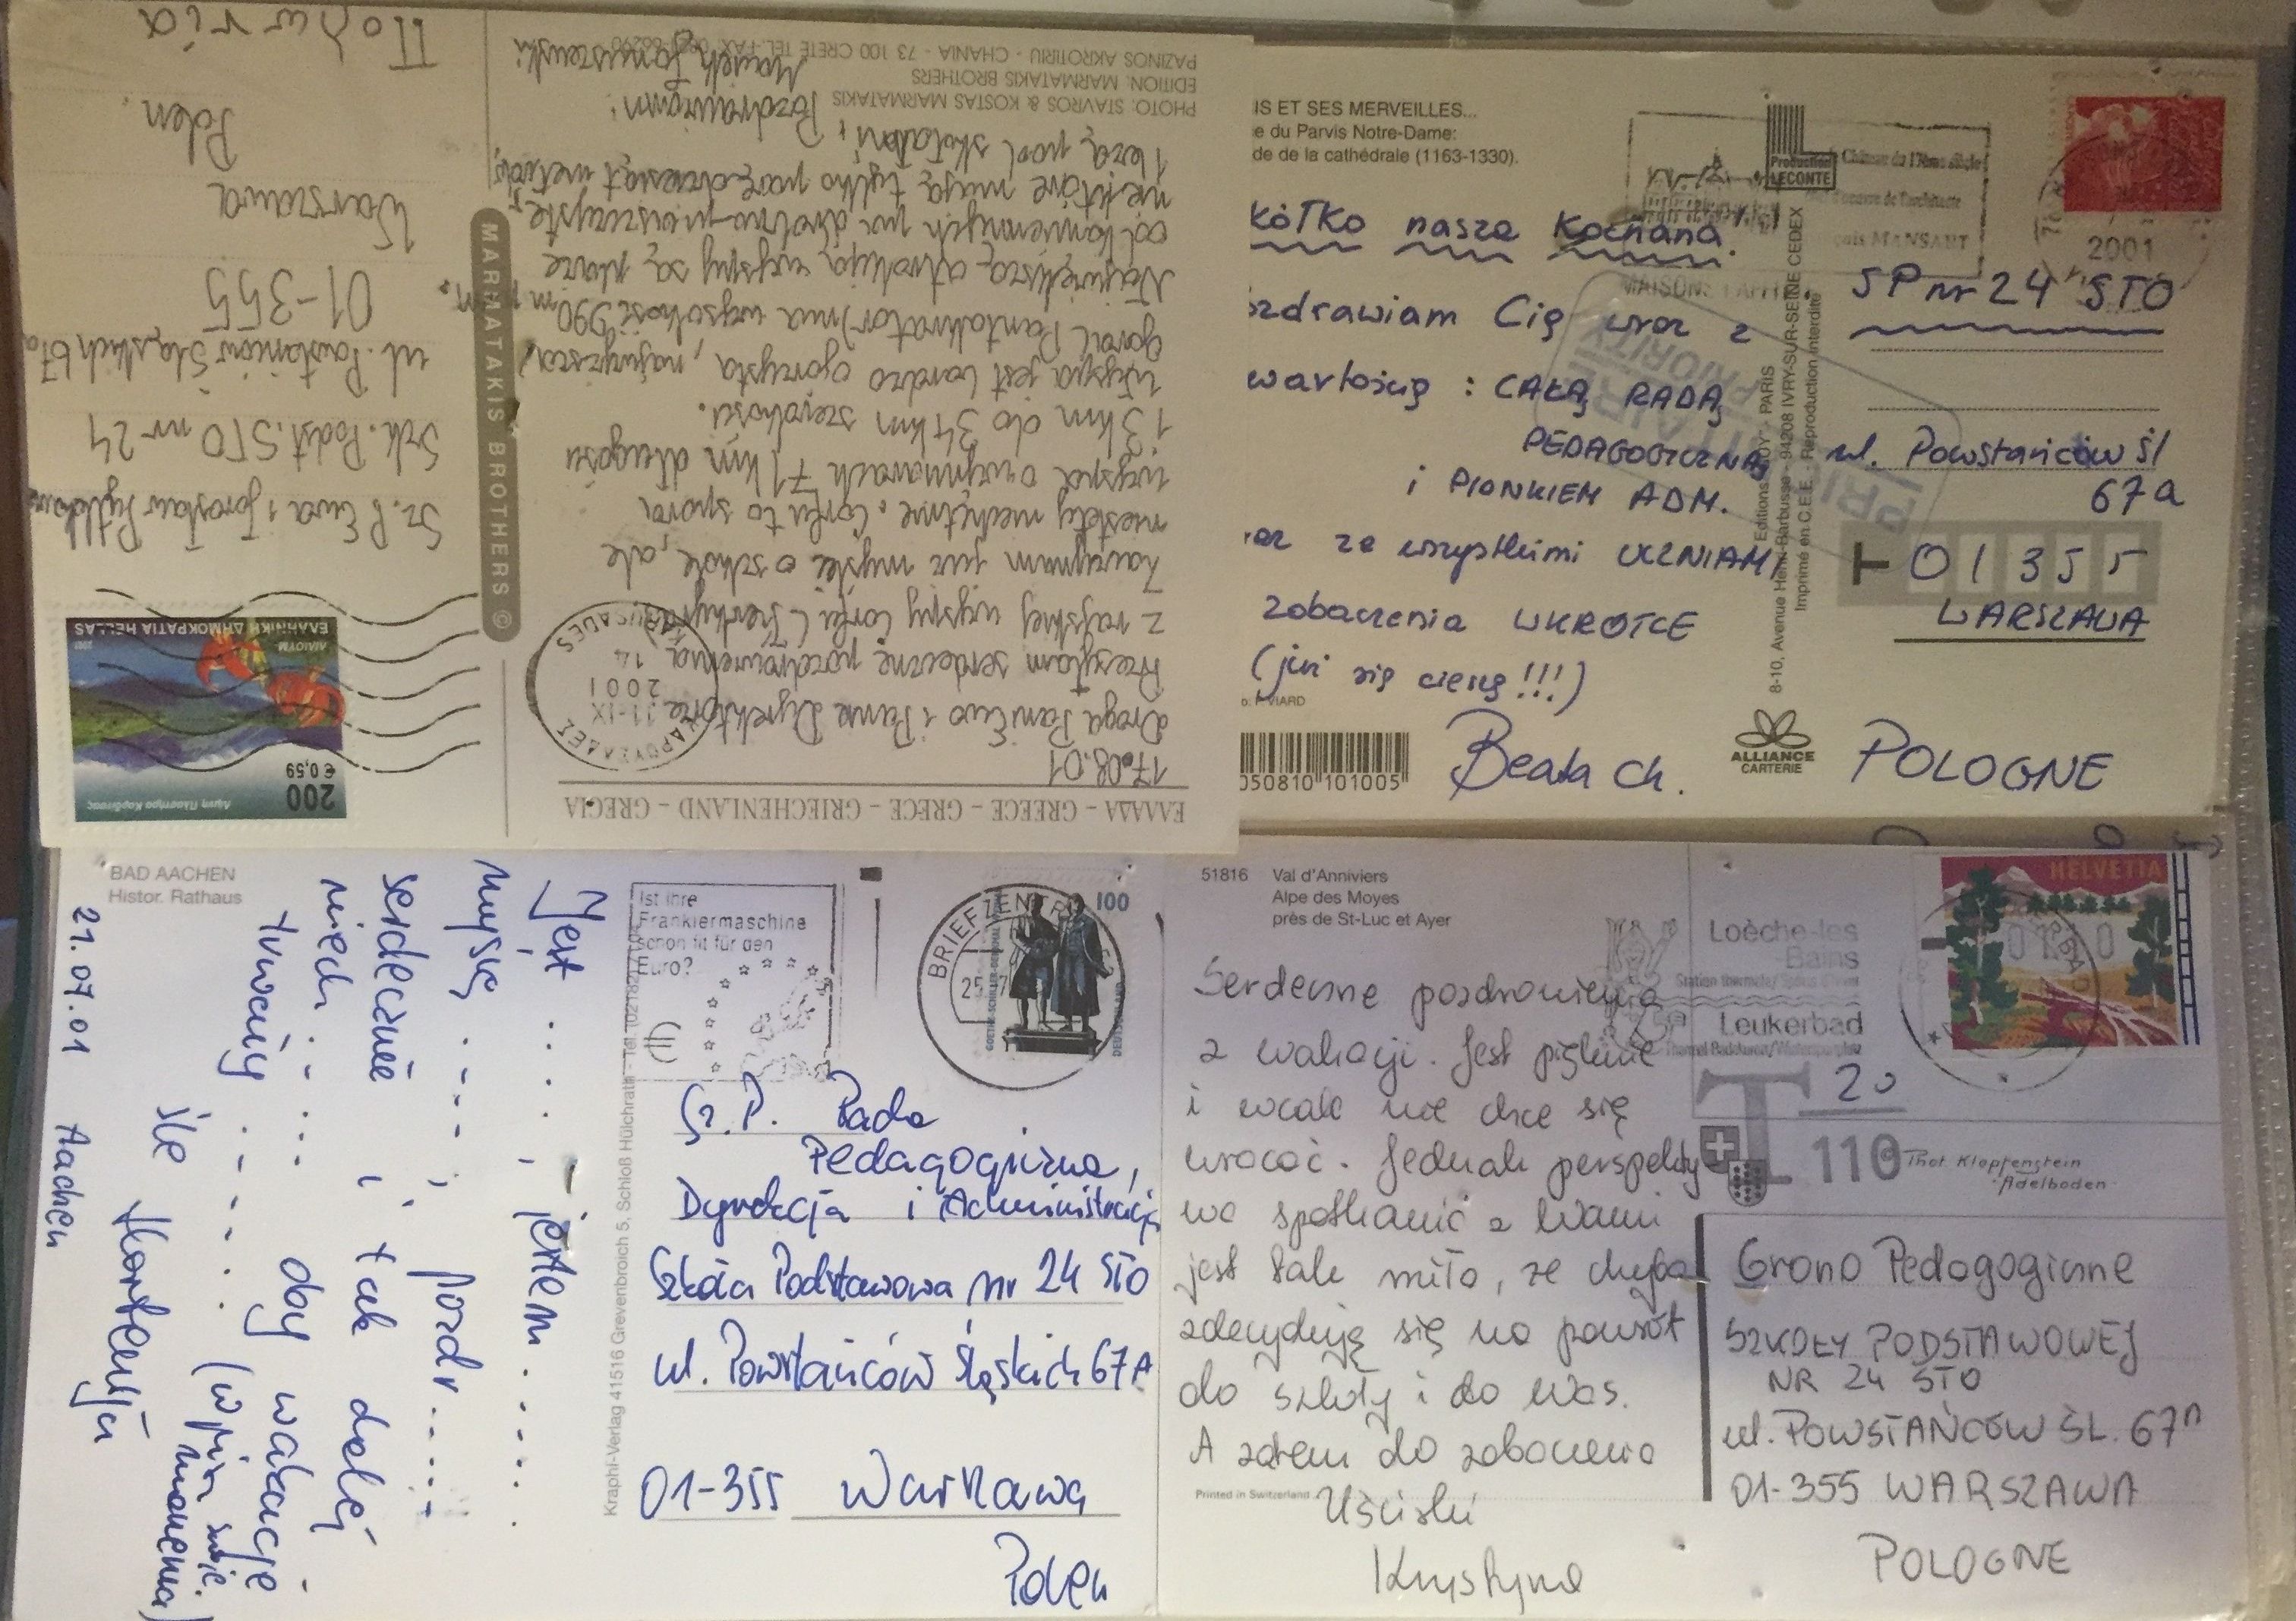 ΕΛΛΑΔΑ – GREECE – GRECE – GRIECHENLAND – GRECIA
17.08.01
Droga Pani Ewo i Panie Dyrektorze
Przesyłam serdeczne pozdrowienia
z rajskiej wyspy Corfu (Kerkyra)
Zaczynam już myśleć o szkole, ale
niestety niechętnie. Corfu to spora
wyspa o wymiarach 71 km długości
13 km do 34 km szerokości.
Wyspa jest bardzo górzysta, najwyższa
góra (Pantokrator) ma wysokość 990 m n.
Największą atrakcją wyspy są plaże
od kamiennych po drobno-piaszczyste,
niektóre mają tylko parędziesiąt metrów,
leżą pod skałami,
Pozdrawiam!
PHOTO: STAVROS & KOSTAS MARMATAKIS
EDITION: MARMATAKIS BROTHERS
PAZINOS AKROTIRIU - CHANIA - 73 100 CRETE TEL. FAX.
MARMATAKIS BROTHERS ©
ΚΑΡΟΥΣΑΔΕΣ
11-IX
2001
14
KAROUSADES
200
€ 0,59
ΕΛΛΗΝΙΚΗ ΔΗΜΟΚΡΑΤΙΑ HELLAS
Sz. P. Ewa i Jarosław
Szk. Podst. STO nr 24
ul. Powstańców Śląskich 67a
01-355
Warszawa
Polen.
IS ET SES MERVEILLES...
e du Parvis Notre-Dame:
de de la cathédrale (1163-1330).
Production
LECONTE
Château du 17ème siècle
d'oeuvre de l'architecte
çois MANSART
MAISONS LAFFITTE
2001
PRIORITAIRE
PRIORITY
kółko nasza Kochana!
ozdrawiam Cię wraz z
wartością : CAŁĄ RADĄ
PEDAGOGICZNĄ
i PIONKIEM ADM.
raz ze wszystkimi UCZNIAMI
zobaczenia WKRÓTCE
(już się cieszę!!!)
Beata Ch.
o: P. VIARD
050810 101005
Editions - PARIS
8-10, Avenue Henri-Barbusse - 94208 IVRY-SUR-SEINE CEDEX
Imprimé en C.E.E. Reproduction interdite
ALLIANCE
CARTERIE
SP nr 24 STO
ul. Powstańców Śl
67a
T 01355
WARSZAWA
POLOGNE
BAD AACHEN
Histor. Rathaus
21.07.01 Aachen
Jest ...., jestem .....
myślę ....; pozdr.....
serdecznie i tak dalej
niech ..... oby wakacje
trwały ..... (wpisz swoje
marzenia)
śle
Kraphi-Verlag 41516 Grevenbroich 5, Schloß Hülchrath - Tel.
Ist Ihre
Frankiermaschine
schon fit für den
Euro?
BRIEFZENTRUM
100
DEUTSCHLAND
Sz. P. Rada
Pedagogiczna,
Dyrekcja i Administracja
Szkoła Podstawowa nr 24 STO
ul. Powstańców Śląskich 67A
01-355 Warszawa
Polen
51816 Val d'Anniviers
Alpe des Moyes
près de St-Luc et Ayer
Serdeczne pozdrowienia
z wakacji. Jest pięknie
i wcale nie chce się
wracać. Jednak perspekty
wa spotkania z Wami
jest tak miła, że chyba
zdecyduję się na powrót
do szkoły i do Was.
A zatem do zobaczenia
Uściski
Krystyna
Printed in Switzerland
Loèche-les
-Bains
Station thermale
Leukerbad
HELVETIA
T 20
110
Phot. Klopfenstein
Adelboden
Grono Pedagogiczne
SZKOŁY PODSTAWOWEJ
NR 24 STO
ul. POWSTAŃCÓW ŚL. 67A
01-355 WARSZAWA
POLOGNE